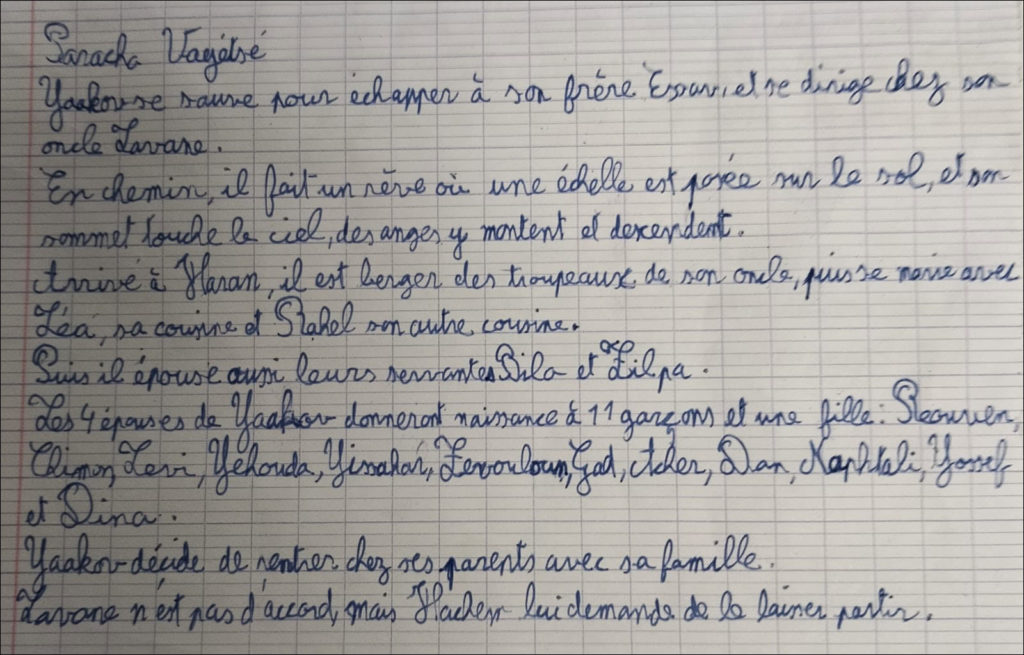 Paracha Vayétsé
Yaakov se sauve pour échapper à son frère Essav, et se dirige chez son
oncle Lavane.
En chemin, il fait un rêve où une échelle est posée sur le sol, et son
sommet touche le ciel, des anges y montent et descendent.
Arrivé à Haran, il est berger des troupeaux de son oncle, puis se marie avec
Léa, sa cousine et Rahel son autre cousine.
Puis il épouse aussi leurs servantes Bila et Zilpa.
Les 4 épouses de Yaakov donneront naissance à 11 garçons et une fille : Reouven,
Chimon, Levi, Yéhouda, Yissahar, Zevouloun, Gad, Acher, Dan, Naphtali, Yossef
et Dina.
Yaakov décide de rentrer chez ses parents avec sa famille.
Lavane n'est pas d'accord, mais Hachem lui demande de le laisser partir.